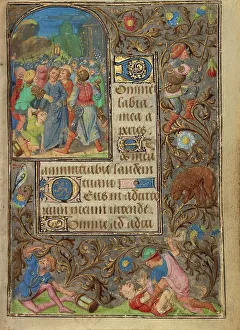 Domine
labia
mea a
peries
Et os meū
annunciabit laudem
tuam
Deus in adiuto
rium meum intende
Domine ad adiu